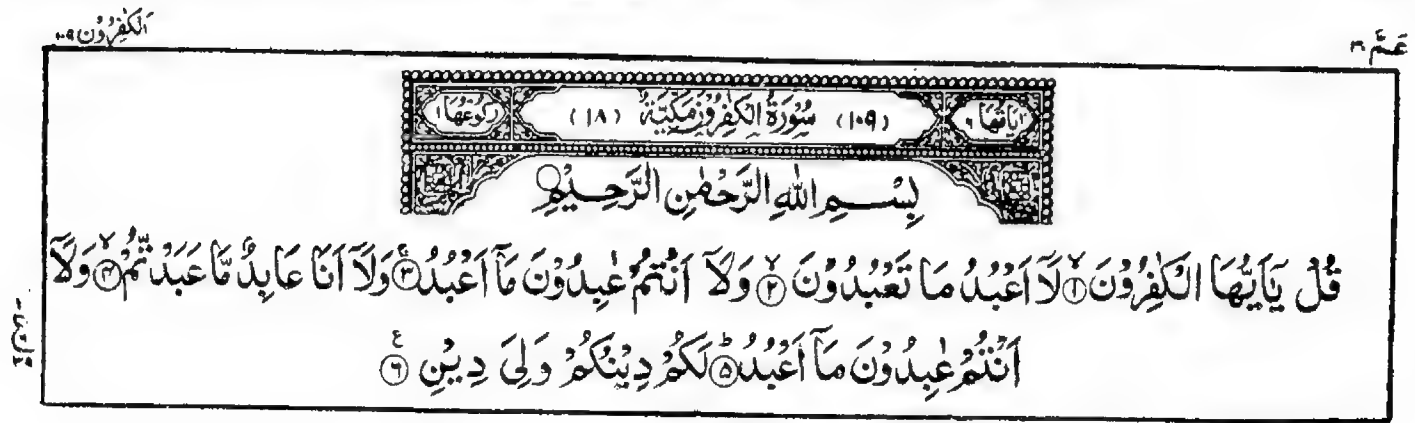 عـمّ ٣٠
اَلْكٰفِرُوْن ١٠٩
اٰيَاتُهَا ٦
(١٠٩) سُوْرَةُ الْكٰفِرُوْنَ مَكِّيَّةٌ (١٨)
رُكُوْعُهَا ١
بِسْـــمِ اللهِ الرَّحْمٰنِ الرَّحِـــيْمِ
قُلْ يٰۤاَيُّهَا الْكٰفِرُوْنَ ۙ﴿١﴾ لَاۤ اَعْبُدُ مَا تَعْبُدُوْنَ ۙ﴿٢﴾ وَلَاۤ اَنْتُمْ عٰبِدُوْنَ مَاۤ اَعْبُدُ ۚ﴿٣﴾ وَلَاۤ اَنَا عَابِدٌ مَّا عَبَدْتُّمْ ۙ﴿٤﴾ وَلَاۤ
اَنْتُمْ عٰبِدُوْنَ مَاۤ اَعْبُدُ ؕ﴿٥﴾ لَكُمْ دِيْنُكُمْ وَلِيَ دِيْنِ ﴿٦﴾ ع